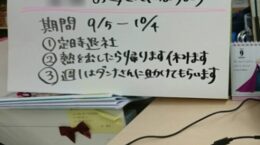 期間 9/5-10/4
①定時退社
②熱を出したら帰ります(休)ます
③週1はダンナさんに助けてもらいます